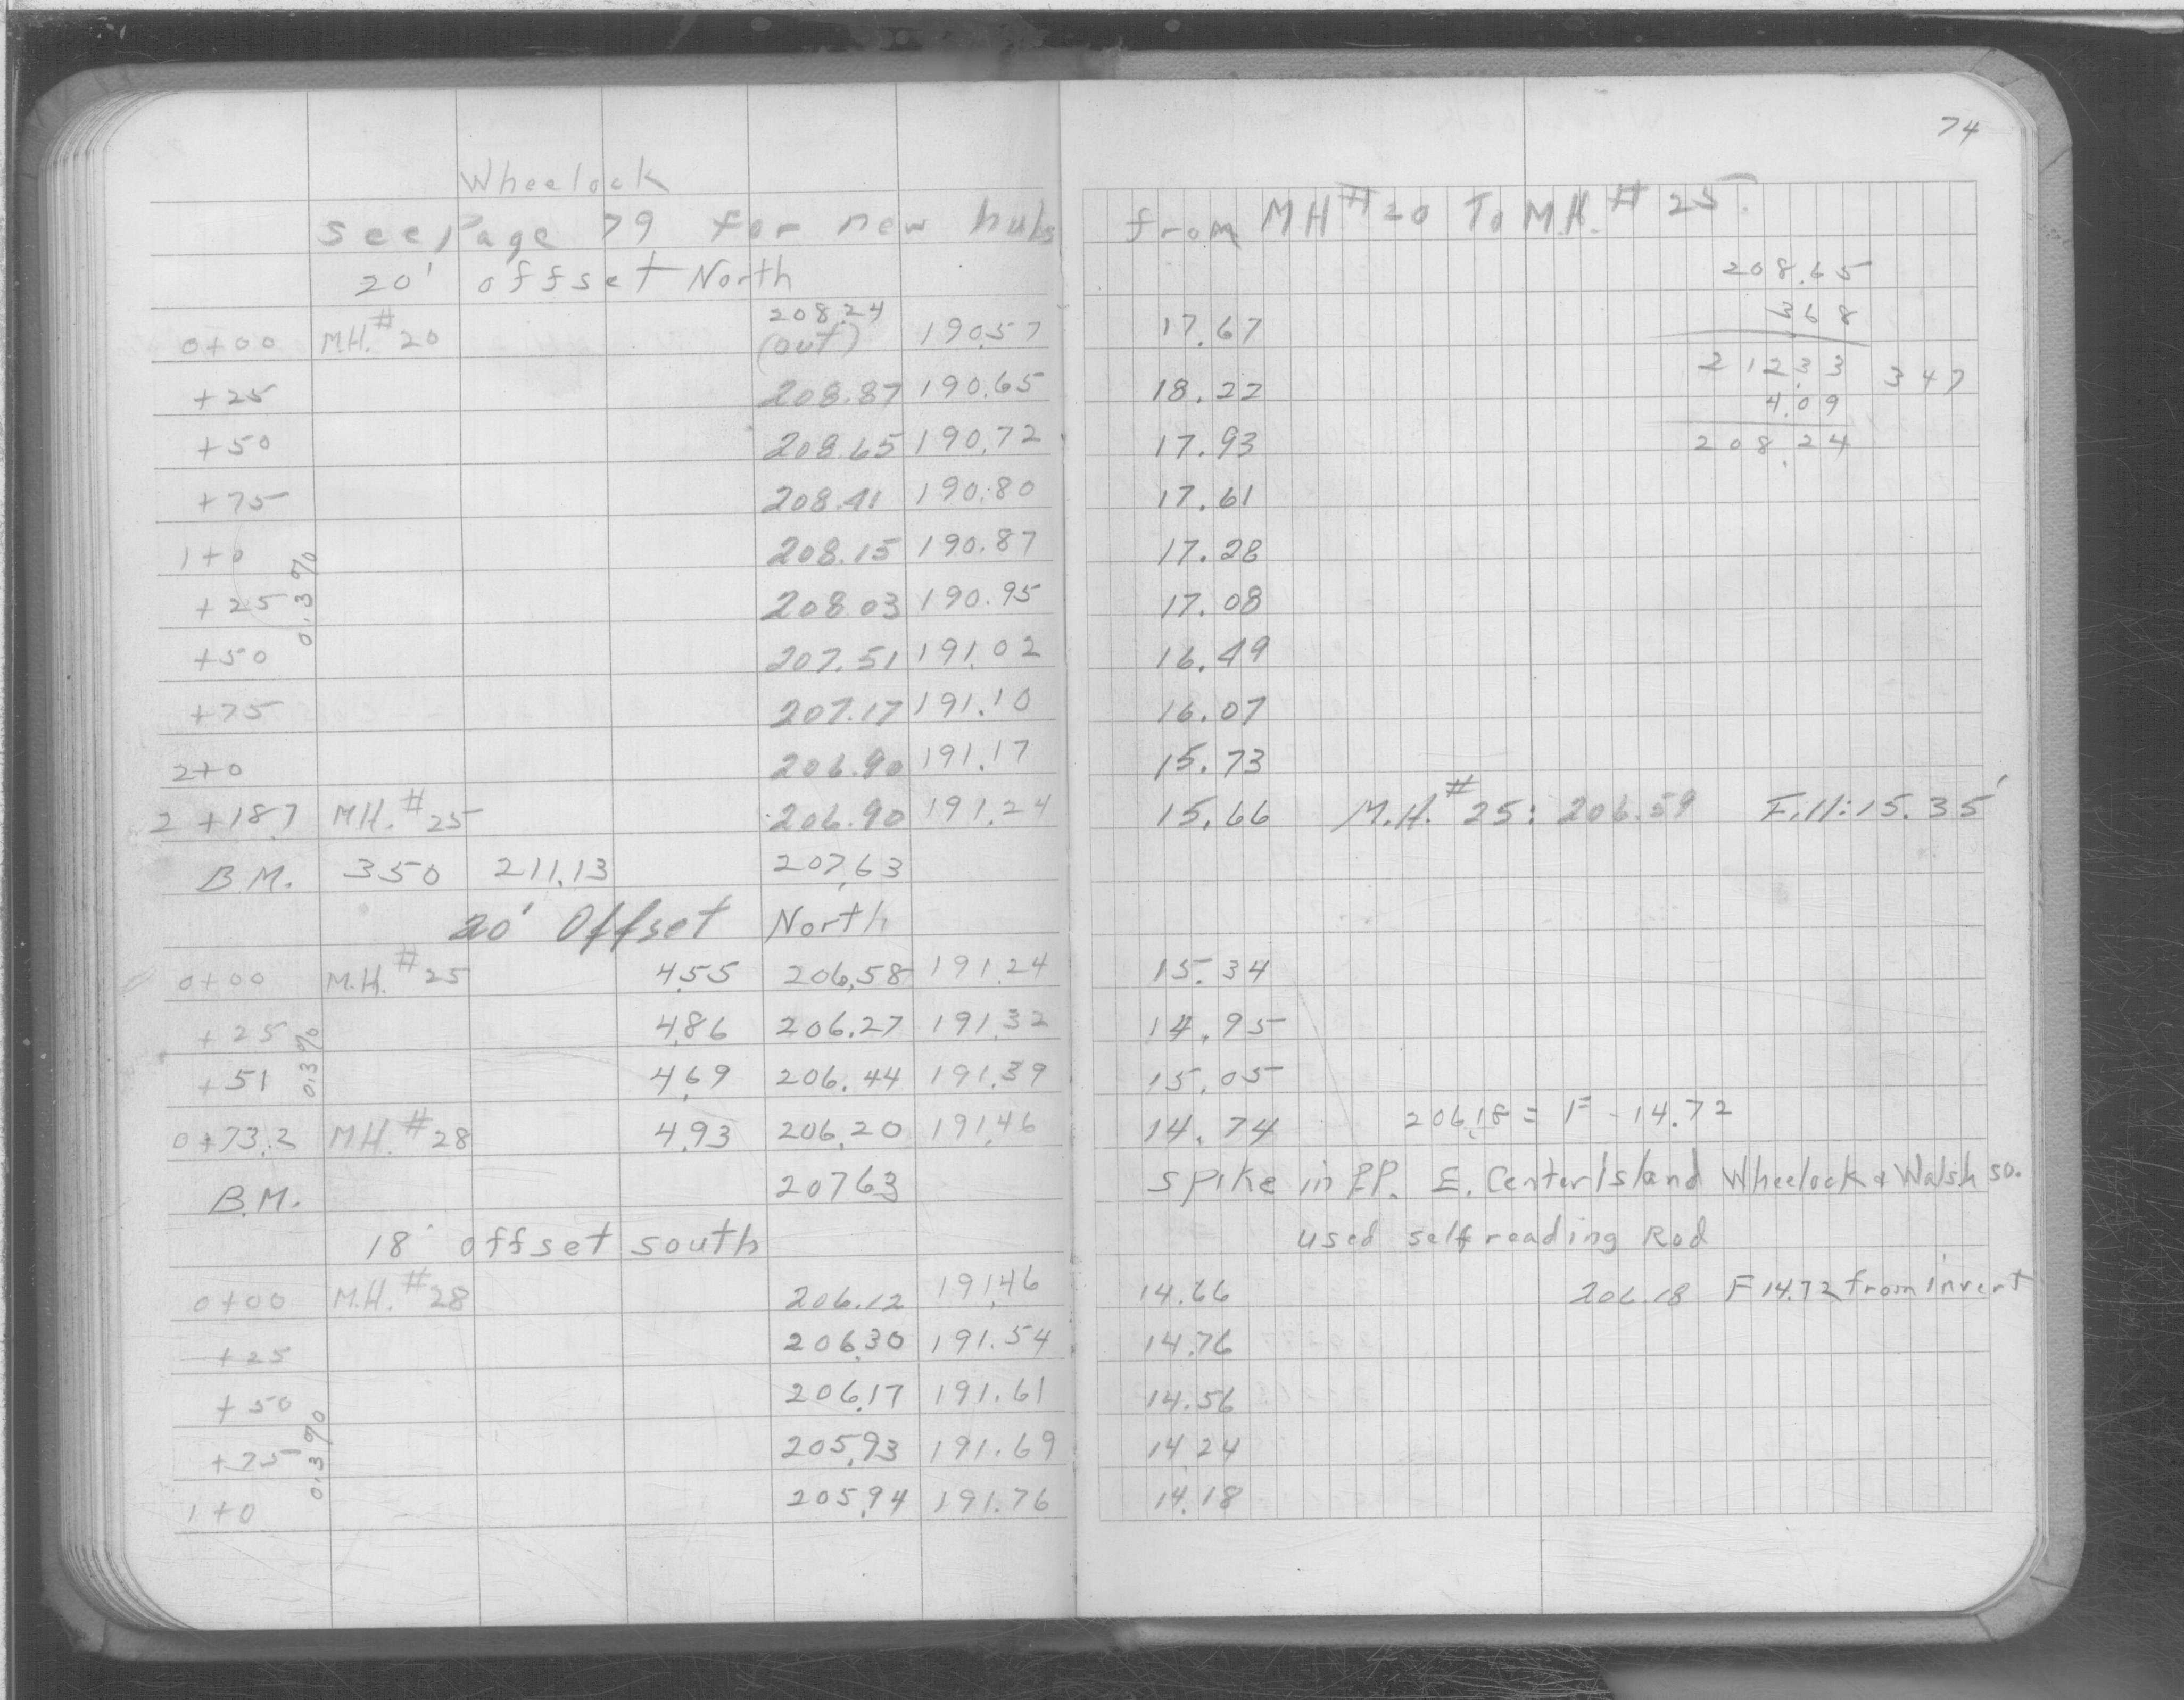 74
Wheelock
see Page 79 for new hubs from MH #20 To M.H. #25.
20' offset North
208.65
368
212.33 347
4.09
208.24
0+00 M.H. #20 208.24 (out) 190.57 17.67
+25 208.87 190.65 18.22
+50 208.65 190.72 17.93
+75 208.41 190.80 17.61
1+0 208.15 190.87 17.28
+25 208.03 190.95 17.08
0.3%
+50 207.51 191.02 16.49
+75 207.17 191.10 16.07
2+0 206.90 191.17 15.73
2+18.7 M.H. #25 206.90 191.24 15.66 M.H. #25: 206.59 Fill: 15.35'
B.M. 350 211.13 207.63
20' Offset North
0+00 M.H. #25 4.55 206.58 191.24 15.34
+25 4.86 206.27 191.32 14.95
0.3%
+51 4.69 206.44 191.39 15.05
0+73.2 M.H. #28 4.93 206.20 191.46 14.74 206.18 = F - 14.72
B.M. 207.63 Spike in P.P. E. Center Island Wheelock & Walsh so.
18' offset south used self reading Rod
0+00 M.H. #28 206.12 191.46 14.66 206.18 F 14.72 from invert
+25 206.30 191.54 14.76
+50 206.17 191.61 14.56
0.3%
+75 205.93 191.69 14.24
1+0 205.94 191.76 14.18